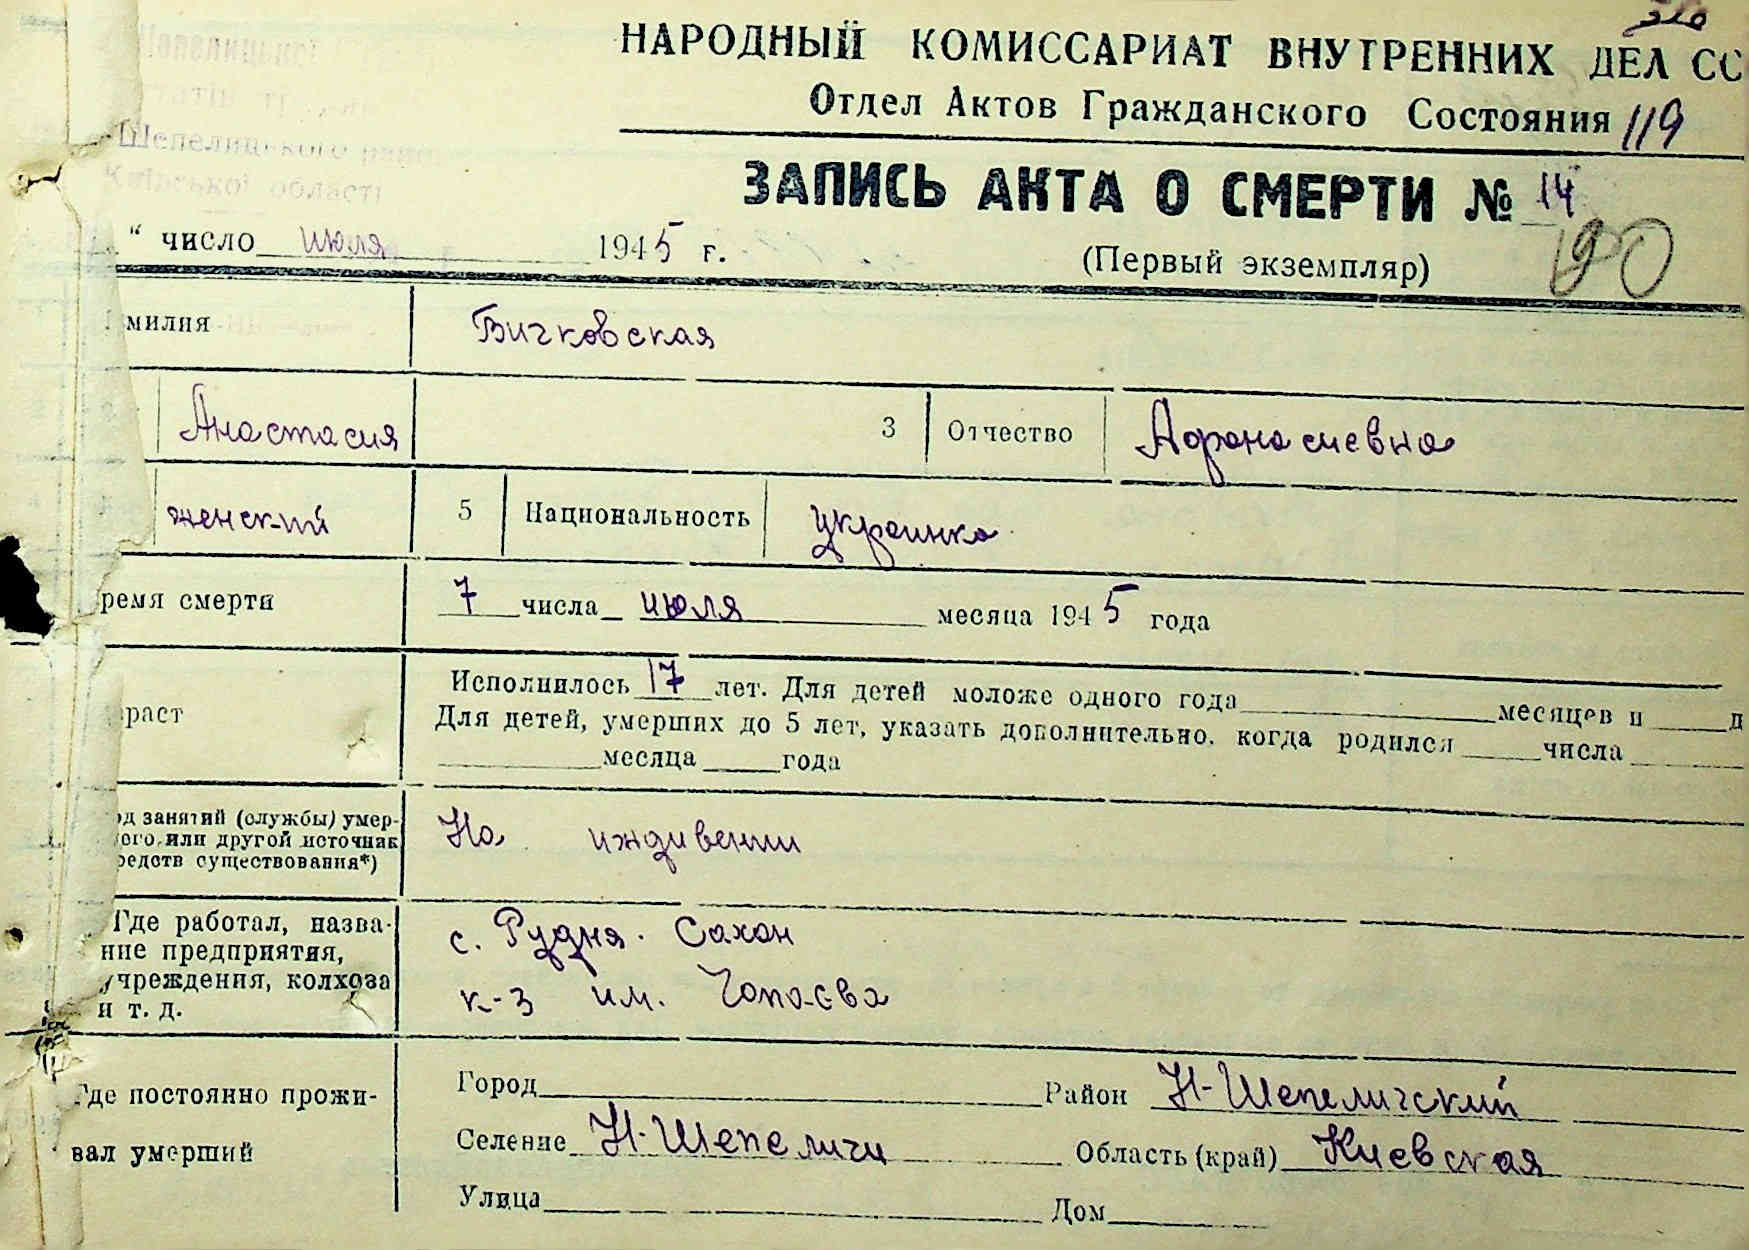 НАРОДНЫЙ КОМИССАРИАТ ВНУТРЕННИХ ДЕЛ СС
Отдел Актов Гражданского Состояния 119
Шепелицького
Київської області
ЗАПИСЬ АКТА О СМЕРТИ № 14
“ число июля 1945 г.
(Первый экземпляр)
90
милия Бичковская
Анастасия 3 Отчество Афанасиевна
женский 5 Национальность украинка
ремя смерти 7 числа июля месяца 1945 года
раст Исполнилось 17 лет. Для детей моложе одного года месяцев и д
Для детей, умерших до 5 лет, указать дополнительно, когда родился числа
месяца года
од занятий (службы) умер-
ого или другой источник
редств существования*)
На иждивении
Где работал, назва-
ние предприятия,
учреждения, колхоза
и т. д.
с. Рудня. Сахан
к-з им. Чапаева
Где постоянно прожи-
вал умерший
Город Район Н-Шепеличский
Селение Н-Шепеличи Область (край) Киевская
Улица Дом